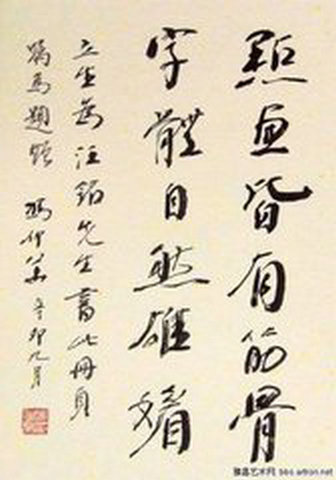 點畫皆有筋骨
字體自然雄媚
先生書此冊頁
題 馮 辛卯九月
雅昌艺术网 bbs.artron.net